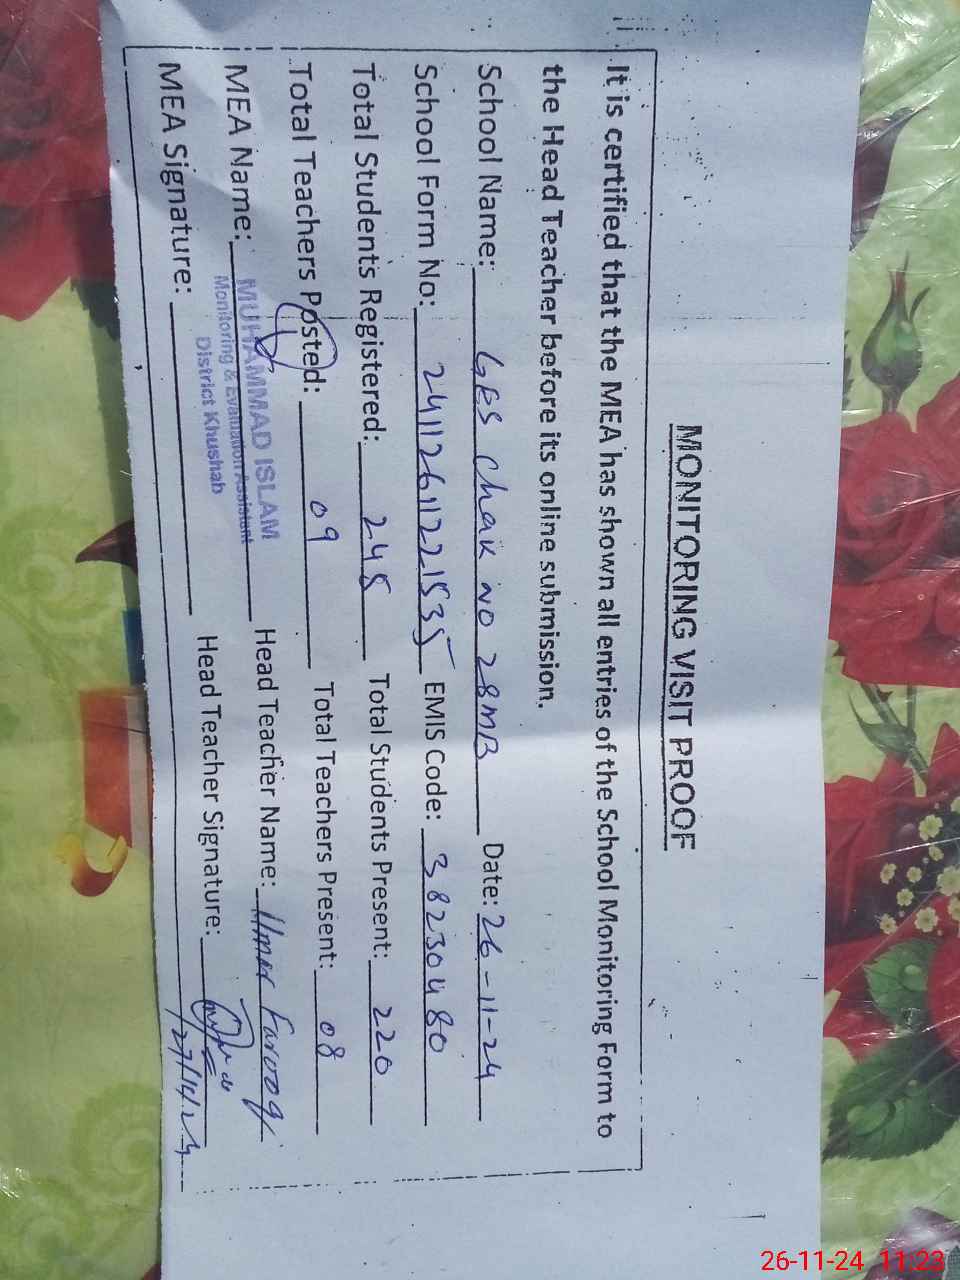 MONITORING VISIT PROOF
It is certified that the MEA has shown all entries of the School Monitoring Form to
the Head Teacher before its online submission.
School Name: GES Chak No 28MB Date: 26-11-24
School Form No: 24112611221535 EMIS Code: 38230480
Total Students Registered: 248 Total Students Present: 220
Total Teachers Posted: 09 Total Teachers Present: 08
MEA Name: MUHAMMAD ISLAM Head Teacher Name: Umar Farooq
Monitoring & Evaluation Assistant
District Khushab
MEA Signature: Head Teacher Signature:
26-11-24 11:23